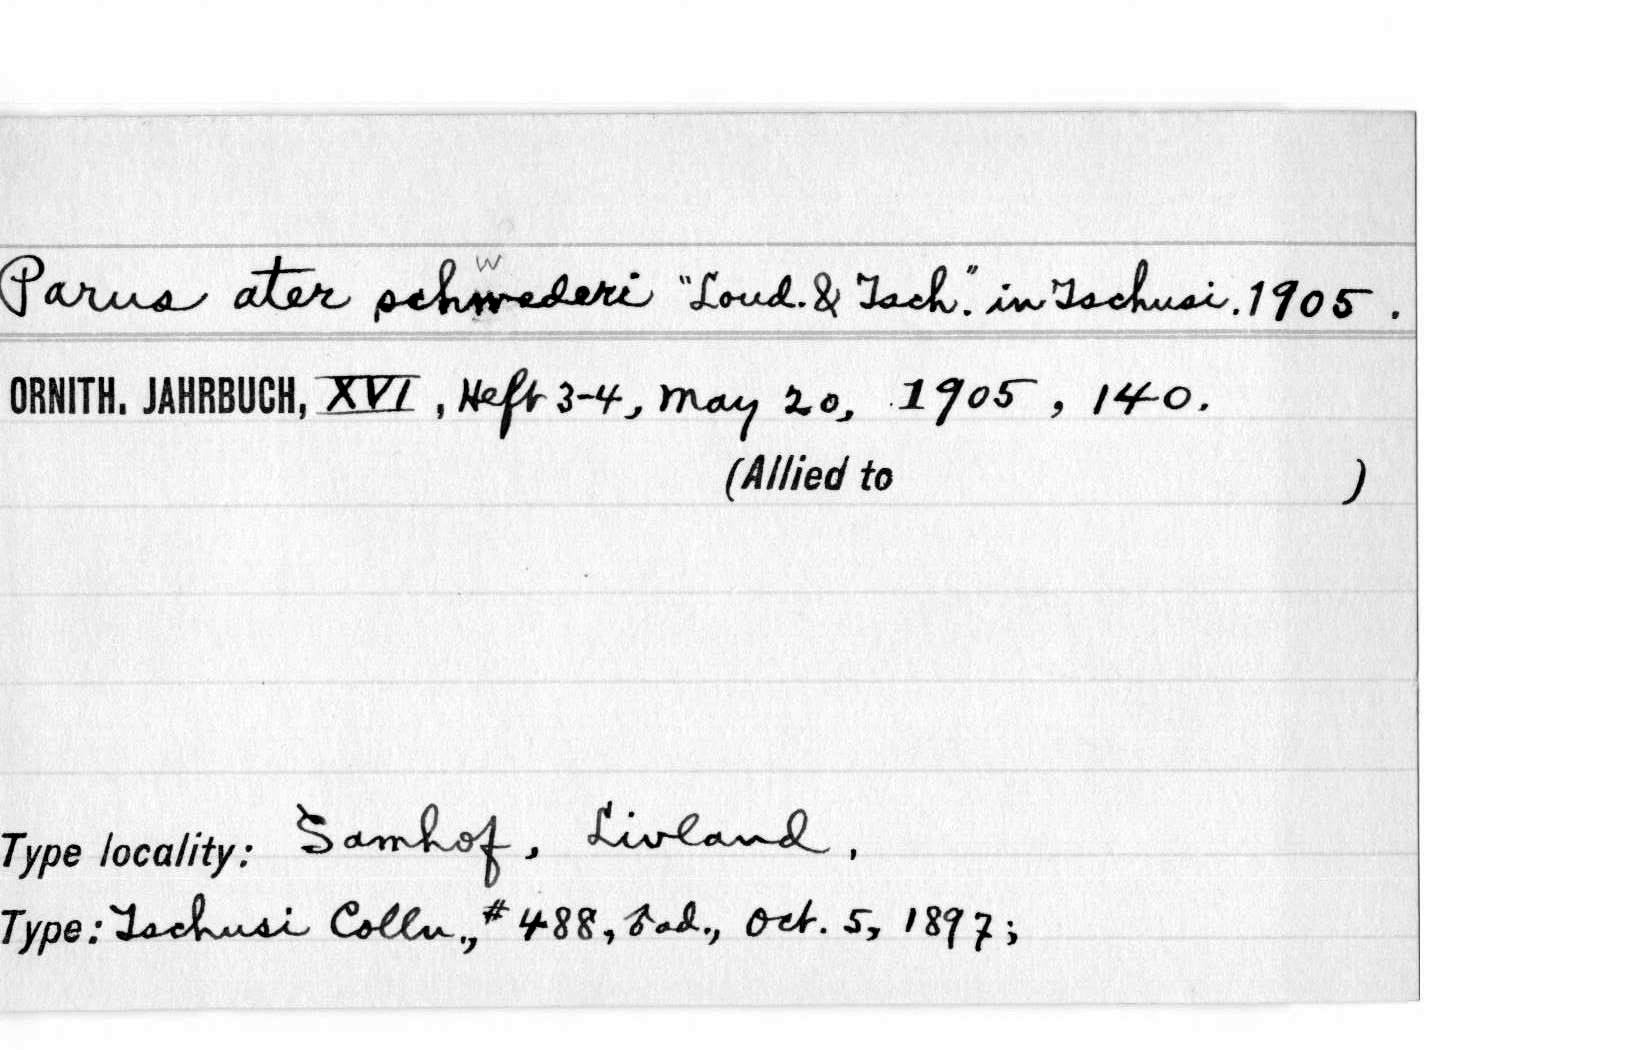 w
Parus ater schwederi "Loud. & Tsch." in Tschusi. 1905.
ORNITH. JAHRBUCH, XVI, Heft 3-4, May 20, 1905, 140.
(Allied to )
Type locality: Samhof, Livland,
Type: Tschusi Colln., # 488, ♂ ad., Oct. 5, 1897;